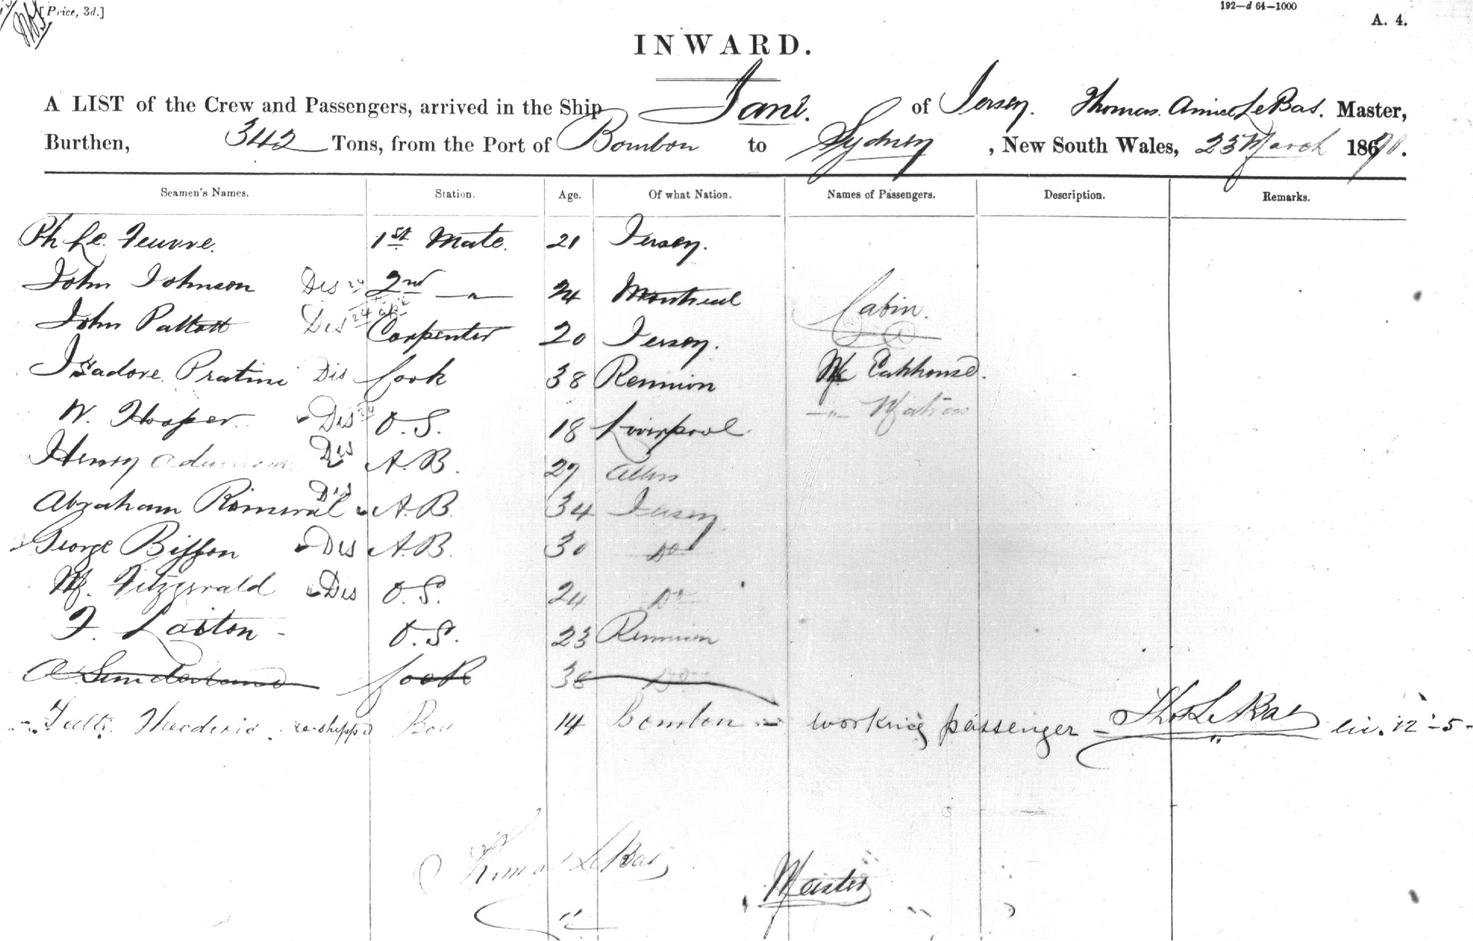 [Price, 3d.]
192—d 64—1000
A. 4.
INWARD.
A LIST of the Crew and Passengers, arrived in the Ship Jane. of Jersey. Thomas Amice LeBas. Master,
Burthen, 342 Tons, from the Port of Bourbon to Sydney, New South Wales, 23 March 1870.
Seamen's Names. Station. Age. Of what Nation. Names of Passengers. Description. Remarks.
Ph Le Feuvre. 1st Mate. 21 Jersey.
John Johnson Dis 2nd " 24 Montreal Cabin.
John Dis Carpenter 20 Jersey.
Isadore Pratini Dis Cook 38 Reunion Mr
W. Hosper Dis O.S. 18 Liverpool "
Henry Dis A.B. 27
Abraham Dis A.B. 34 Jersey
George Bisson Dis A.B. 30 Do
W. Fitzgerald Dis O.S. 24 Do
F. Laiton - O.S. 23 Reunion
Cook 38 Do
re-shipped Boy 14 Bourbon working passenger - Thos Le Bas 12-5-
Thomas Le Bas
Master